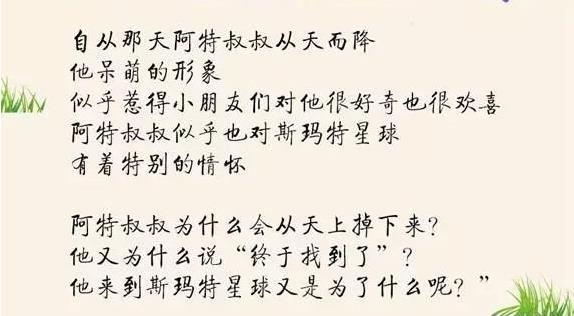 自从那天阿特叔叔从天而降
他呆萌的形象
似乎惹得小朋友们对他很好奇也很欢喜
阿特叔叔似乎也对斯玛特星球
有着特别的情怀
阿特叔叔为什么会从天上掉下来?
他又为什么说“终于找到了”?
他来到斯玛特星球又是为了什么呢?”